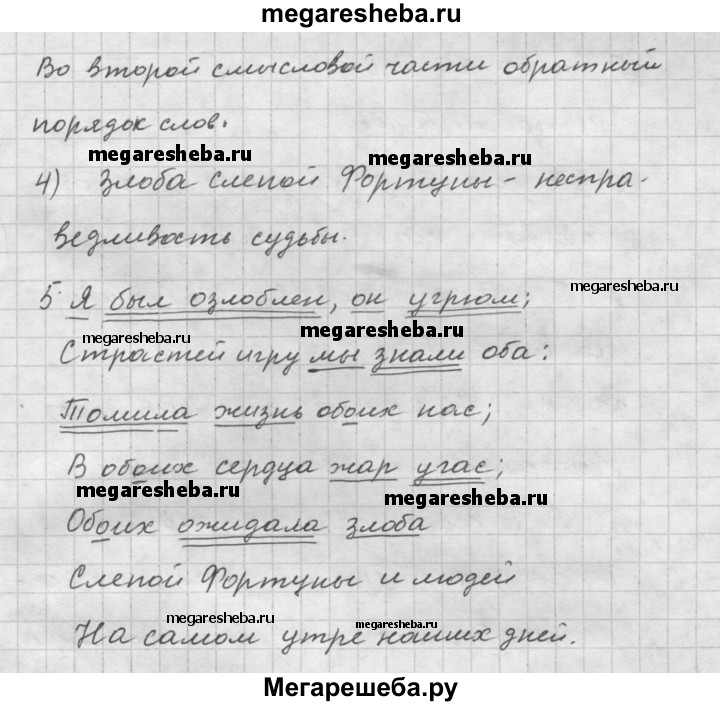 megaresheba.ru
Во второй смысловой части обратный
порядок слов.
megaresheba.ru
megaresheba.ru
4) Злоба слепой Фортуны - неспра-
ведливость судьбы.
megaresheba.ru
5. Я был озлоблен, он угрюм;
megaresheba.ru
megaresheba.ru
Страстей игру мы знали оба:
Томила жизнь обоих нас;
В обоих сердца жар угас;
megaresheba.ru
megaresheba.ru
Обоих ожидала злоба
Слепой Фортуны и людей
megaresheba.ru
megaresheba.ru
На самом утре наших дней.
Мегарешеба.ру